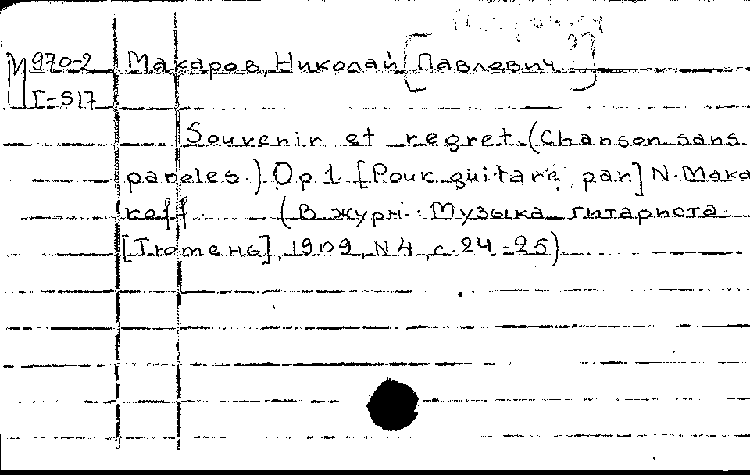 М 970-2 Макаров, Николай [Павлович]
I-517
Souvenir et regret. (Chanson sans
paroles.) Op 1 [Pour guitare, par] N. Maka
roff. (В журн.: Музыка гитариста.
[Тюмень], 1909, N 4, с. 24-25)